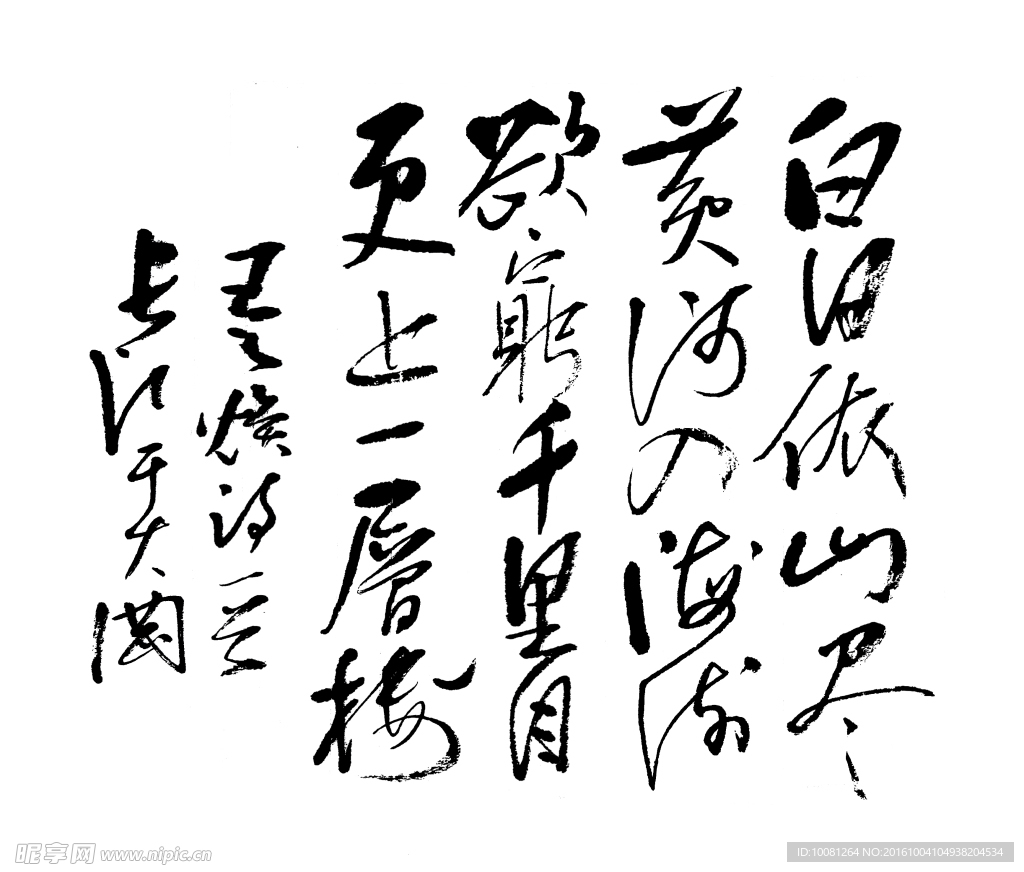 白日依山尽
黄河入海流
欲窮千里目
更上一層楼
王之焕诗一首
长江于大
昵享网 www.nipic.cn
ID:10081264 NO:20161004104938204534